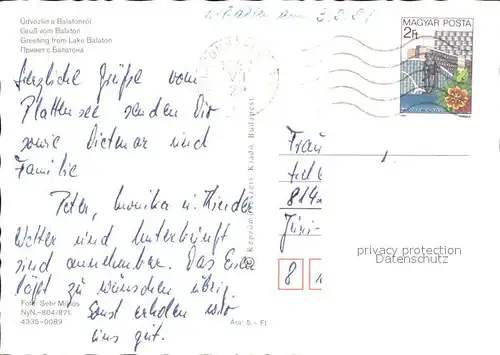 Üdvözlet a Balatonról
Gruß vom Balaton
Greeting from Lake Balaton
Привет с Балатона
erhalten am 3.8.87
MAGYAR POSTA
2Ft
Herzliche Grüße vom
Plattensee senden Dir
sowie Dietmar und
Familie
Peter, Monika u. Kinder
Wetter und Unterkunft
sind annehmbar. Das Essen
läßt zu wünschen übrig.
Sonst erholen wir
uns gut.
Képzőművészeti Kiadó, Budapest
Frau
814
8
privacy protection
Datenschutz
Fotó: Sehr Miklós
NyN.-604/871.
4335-0089
Ára: 5.- Ft